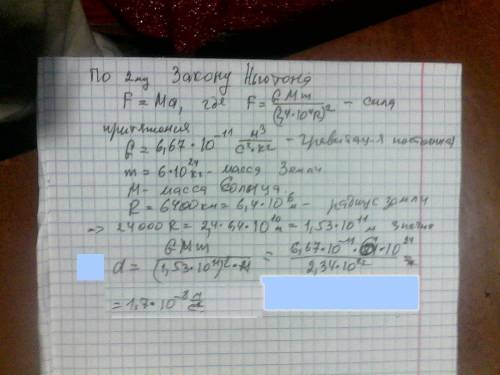 По 2му Закону Ньютона
F = Ma, где F = GMm/(2,4·10⁴R)² – сила
притяжения
G = 6,67·10⁻¹¹ м³/с²·кг – гравитац-я постоянная
m = 6·10²⁴ кг – масса Земли
M – масса Солнца.
R = 6400 км = 6,4·10⁶ м – радиус земли
=> 24000 R = 2,4·6,4·10¹⁰ м = 1,53·10¹¹ м значит
a = GMm/((1,53·10¹¹)²·M) = 6,67·10⁻¹¹·6·10²⁴/2,34·10²²
= 1,7·10⁻⁸ м/с²